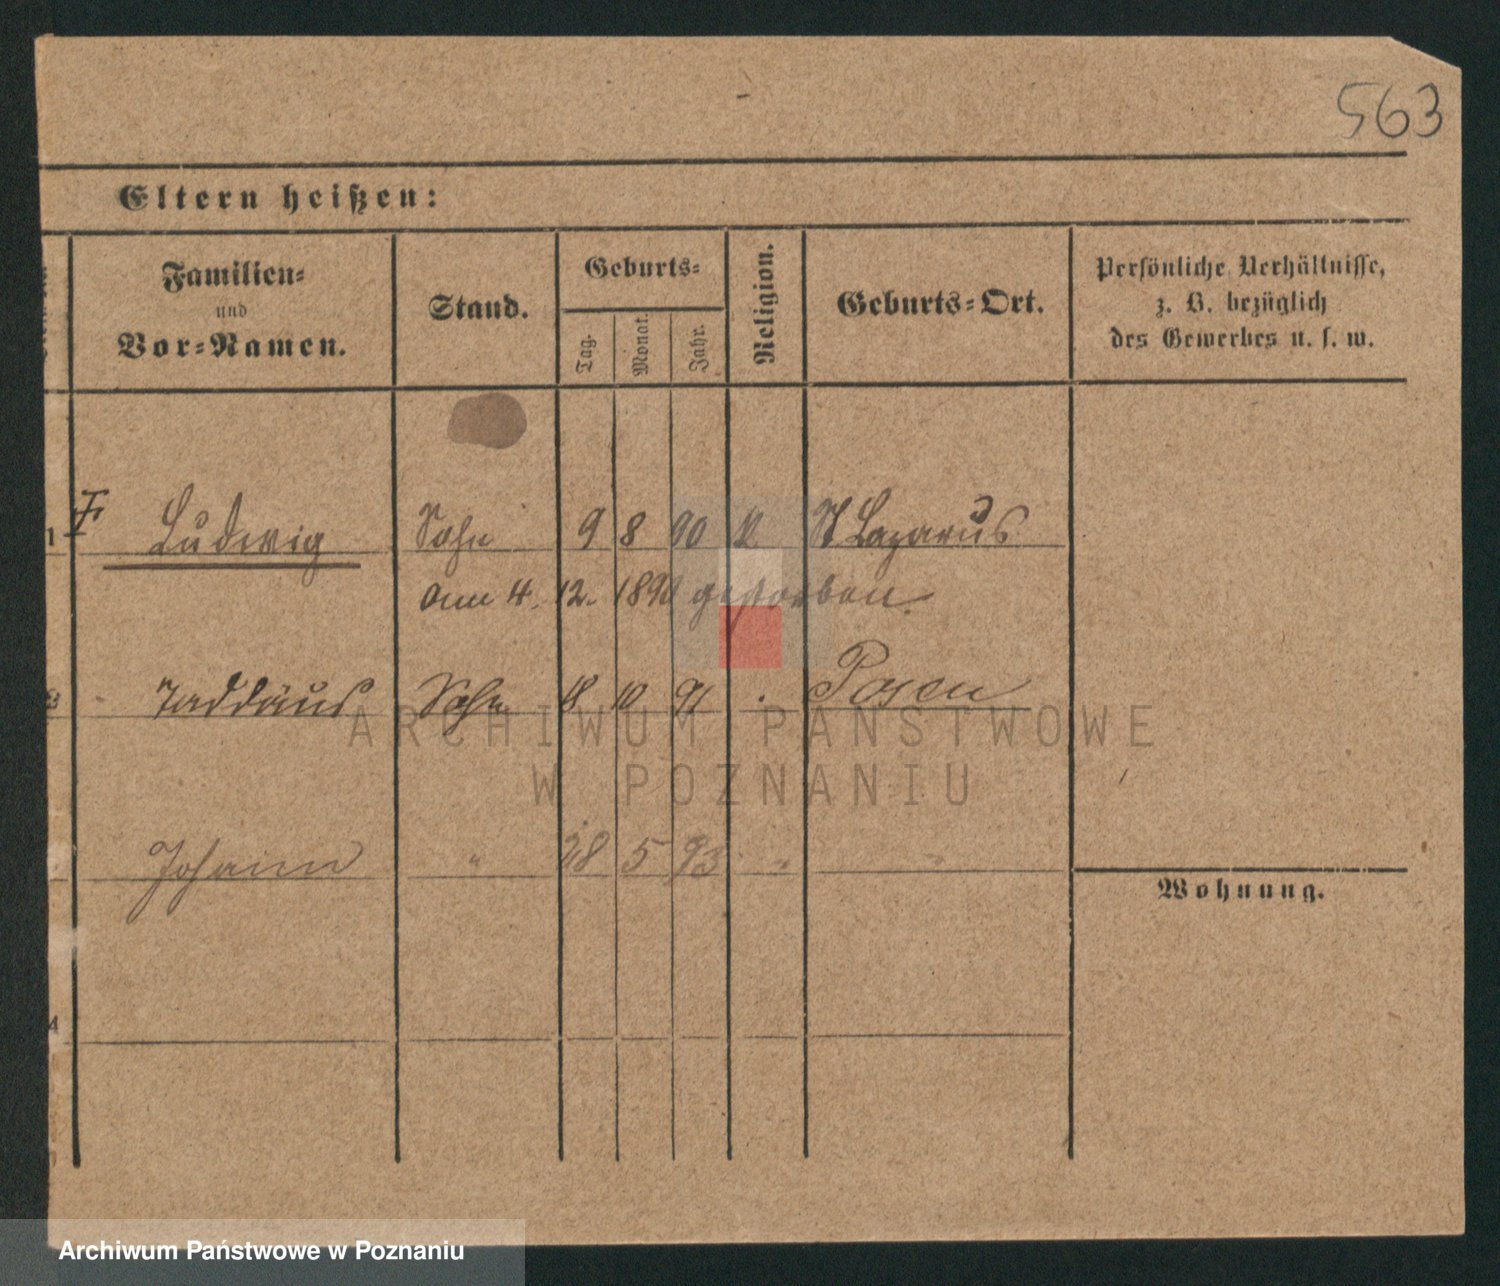 563
Eltern heißen:
Familien=
und
Vor=Namen.
Stand.
Geburts=
Tag.
Monat.
Jahr.
Religion.
Geburts=Ort.
Persönliche Verhältnisse,
z. B. bezüglich
des Gewerbes u. s. w.
1 Ludwig Sohn 9 8 90 K St Lazarus
am 4. 12. 1890 gestorben.
Taddäus Sohn 18 10 91 Posen
ARCHIWUM PAŃSTWOWE
W POZNANIU
Johann " 28 5 93 " "
Wohnung.
4
Archiwum Państwowe w Poznaniu